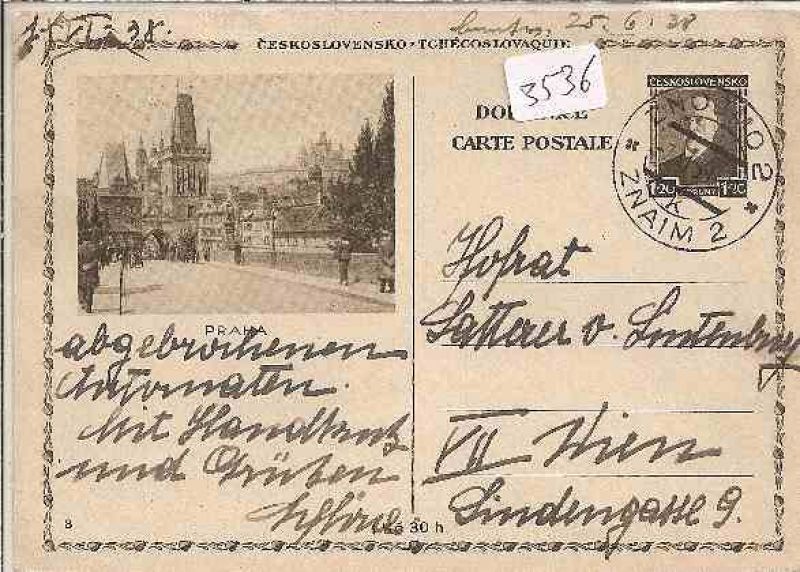 25. 6. 38
VI. 38.
ČESKOSLOVENSKO · TCHÉCOSLOVAQUIE
3536
ČESKOSLOVENSKO
CARTE POSTALE
1.20 1.20
ZNOJMO 2
ZNAIM 2
PRAHA
abgebrochenen
Automaten.
Mit Handkuß
und Grüßen
Hofrat
Satterer v. Lintenburg
VII Wien
Lindengasse 9.
8
30 h